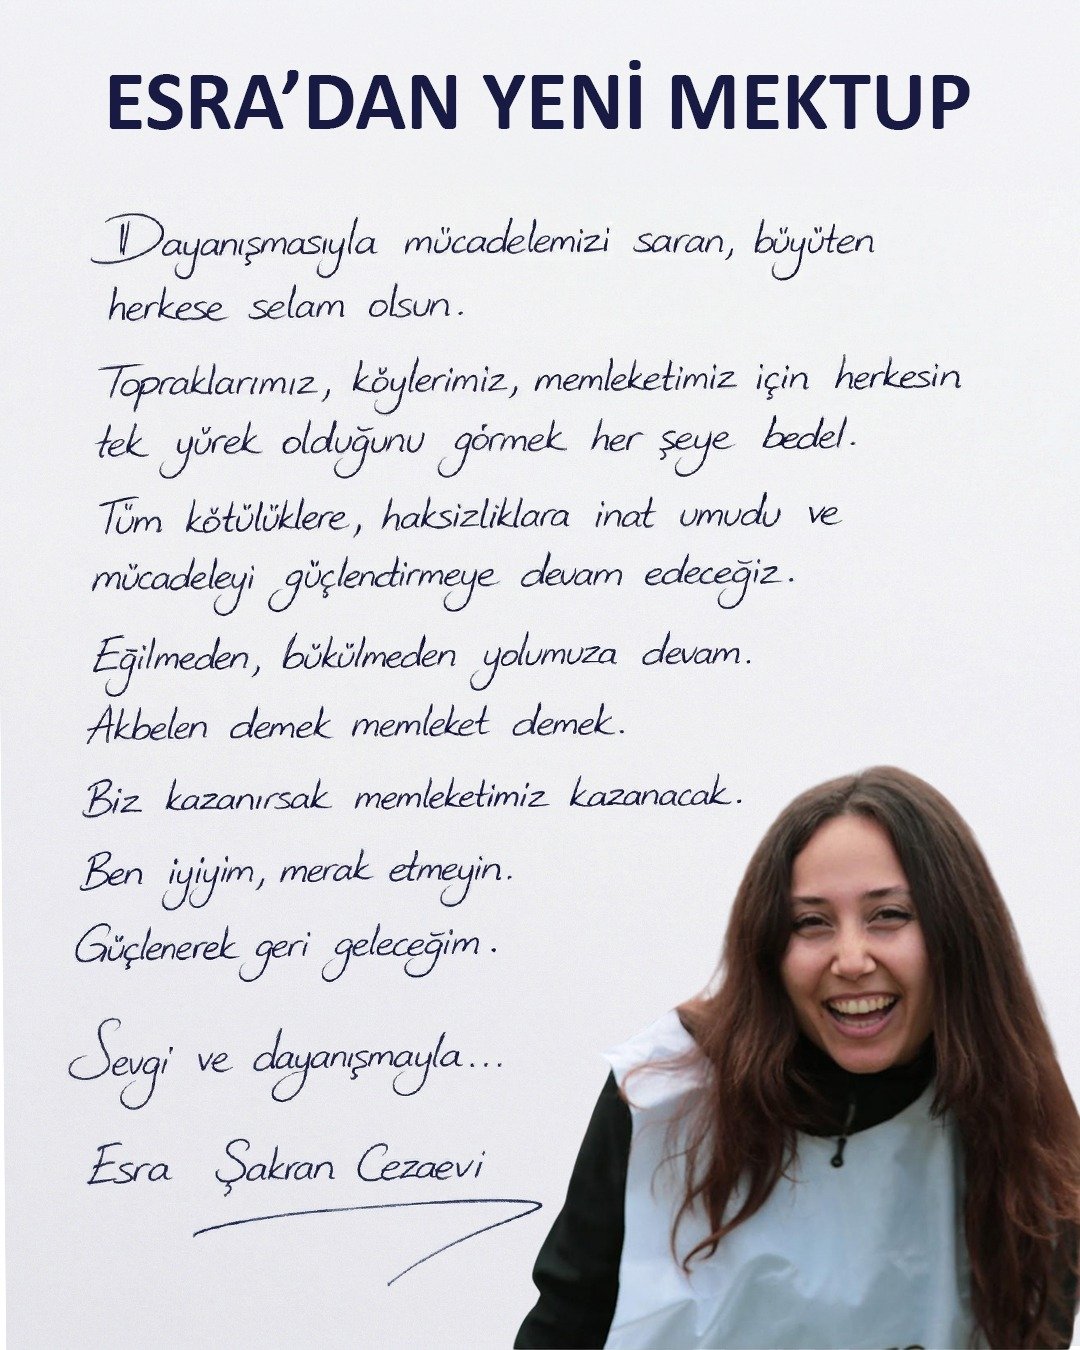 ESRA’DAN YENİ MEKTUP
Dayanışmasıyla mücadelemizi saran, büyüten
herkese selam olsun.
Topraklarımız, köylerimiz, memleketimiz için herkesin
tek yürek olduğunu görmek her şeye bedel.
Tüm kötülüklere, haksizliklara inat umudu ve
mücadeleyi güçlendirmeye devam edeceğiz.
Eğilmeden, bükülmeden yolumuza devam.
Akbelen demek memleket demek.
Biz kazanırsak memleketimiz kazanacak.
Ben iyiyim, merak etmeyin.
Güçlenerek geri geleceğim.
Sevgi ve dayanışmayla...
Esra Şakran Cezaevi